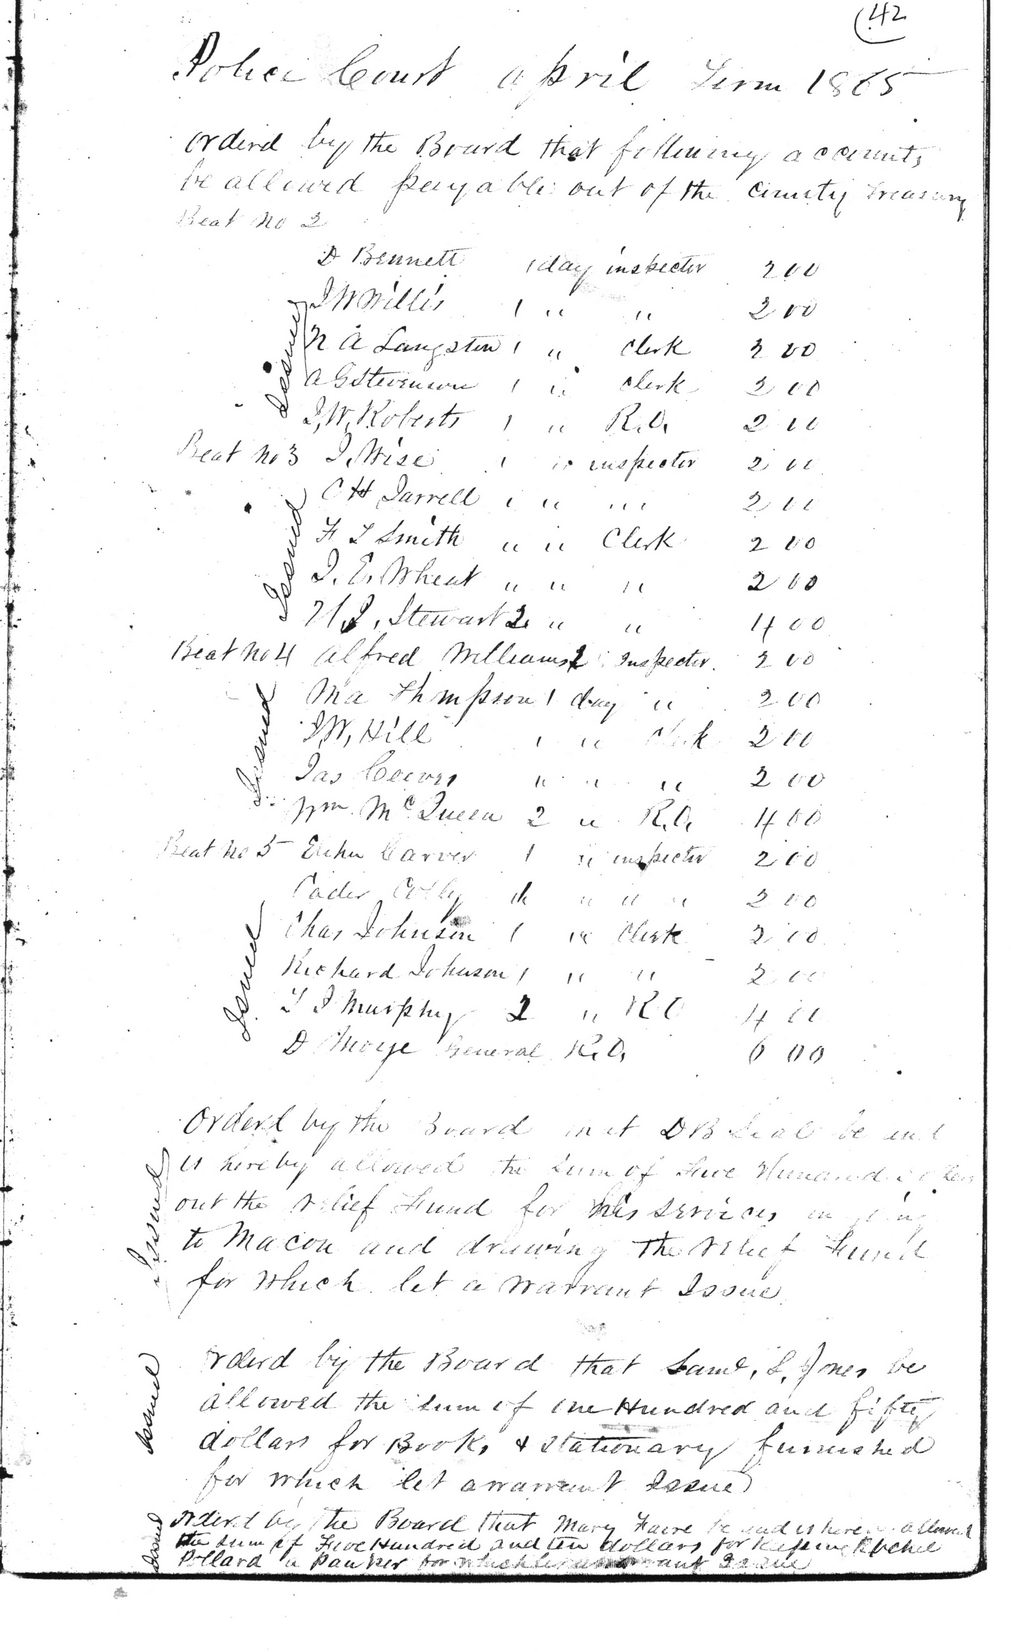 42
Police Court april Term 1865
orderd by the Board that following accounts
be allowed payable out of the county Treasury
Beat no 2
D Bennett 1 day inspector 2 00
J W Willis 1 " " 2 00
N A Langston 1 " Clerk 2 00
A G Stevenson 1 " clerk 2 00
J, W, Roberts 1 " R.O. 2 00
Beat no 3 J, Wise 1 " inspector 2 00
C H Jarrell 1 " " 2 00
F L Smith " " Clerk 2 00
J. E. Wheat " " " 2 00
Stewart 2 " " 4 00
Beat no 4 alfred Williams inspector. 2 00
Ma Thmpson 1 day " 2 00
J, W, Hill " " Clerk 2 00
Jas " " " 2 00
Wm McQueen 2 " R.O. 4 00
Beat no 5 Carver 1 " inspector 2 00
Cader " " 2 00
Chas Johnson 1 " Clerk 2 00
Richard Johnson 1 " " 2 00
T J Murphy 2 " R O 4 00
D Moye General R.O. 6 00
Issued
Issued
Issued
Issued
Orderd by the Board that D B Seal be and
is hereby allowed the sum of Five Hundred
out the relief Fund for his services in going
to Macon and drawing the relief Fund
for which let a warrant Issue
Issued
orderd by the Board that Saml, S, Jones be
allowed the sum of one Hundred and fifty
dollars for Books & Stationary furnished
for which let a warrant Issue
Issued
orderd by the Board that Mary Faire be and is hereby allowed
the sum of Five Hundred and ten dollars for Keeping Rachel
Pollard a pauper for which let a warrant Issue
Issued